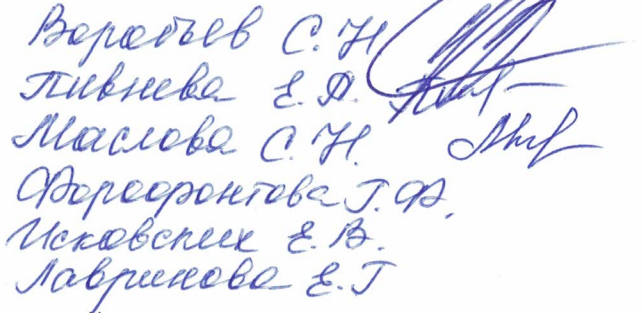 Воробьев С. Н
Пивнева Е. А.
Маслова С. Н.
Форофонтова Г. Ф.
Исковских Е. В.
Лавринова Е. Г